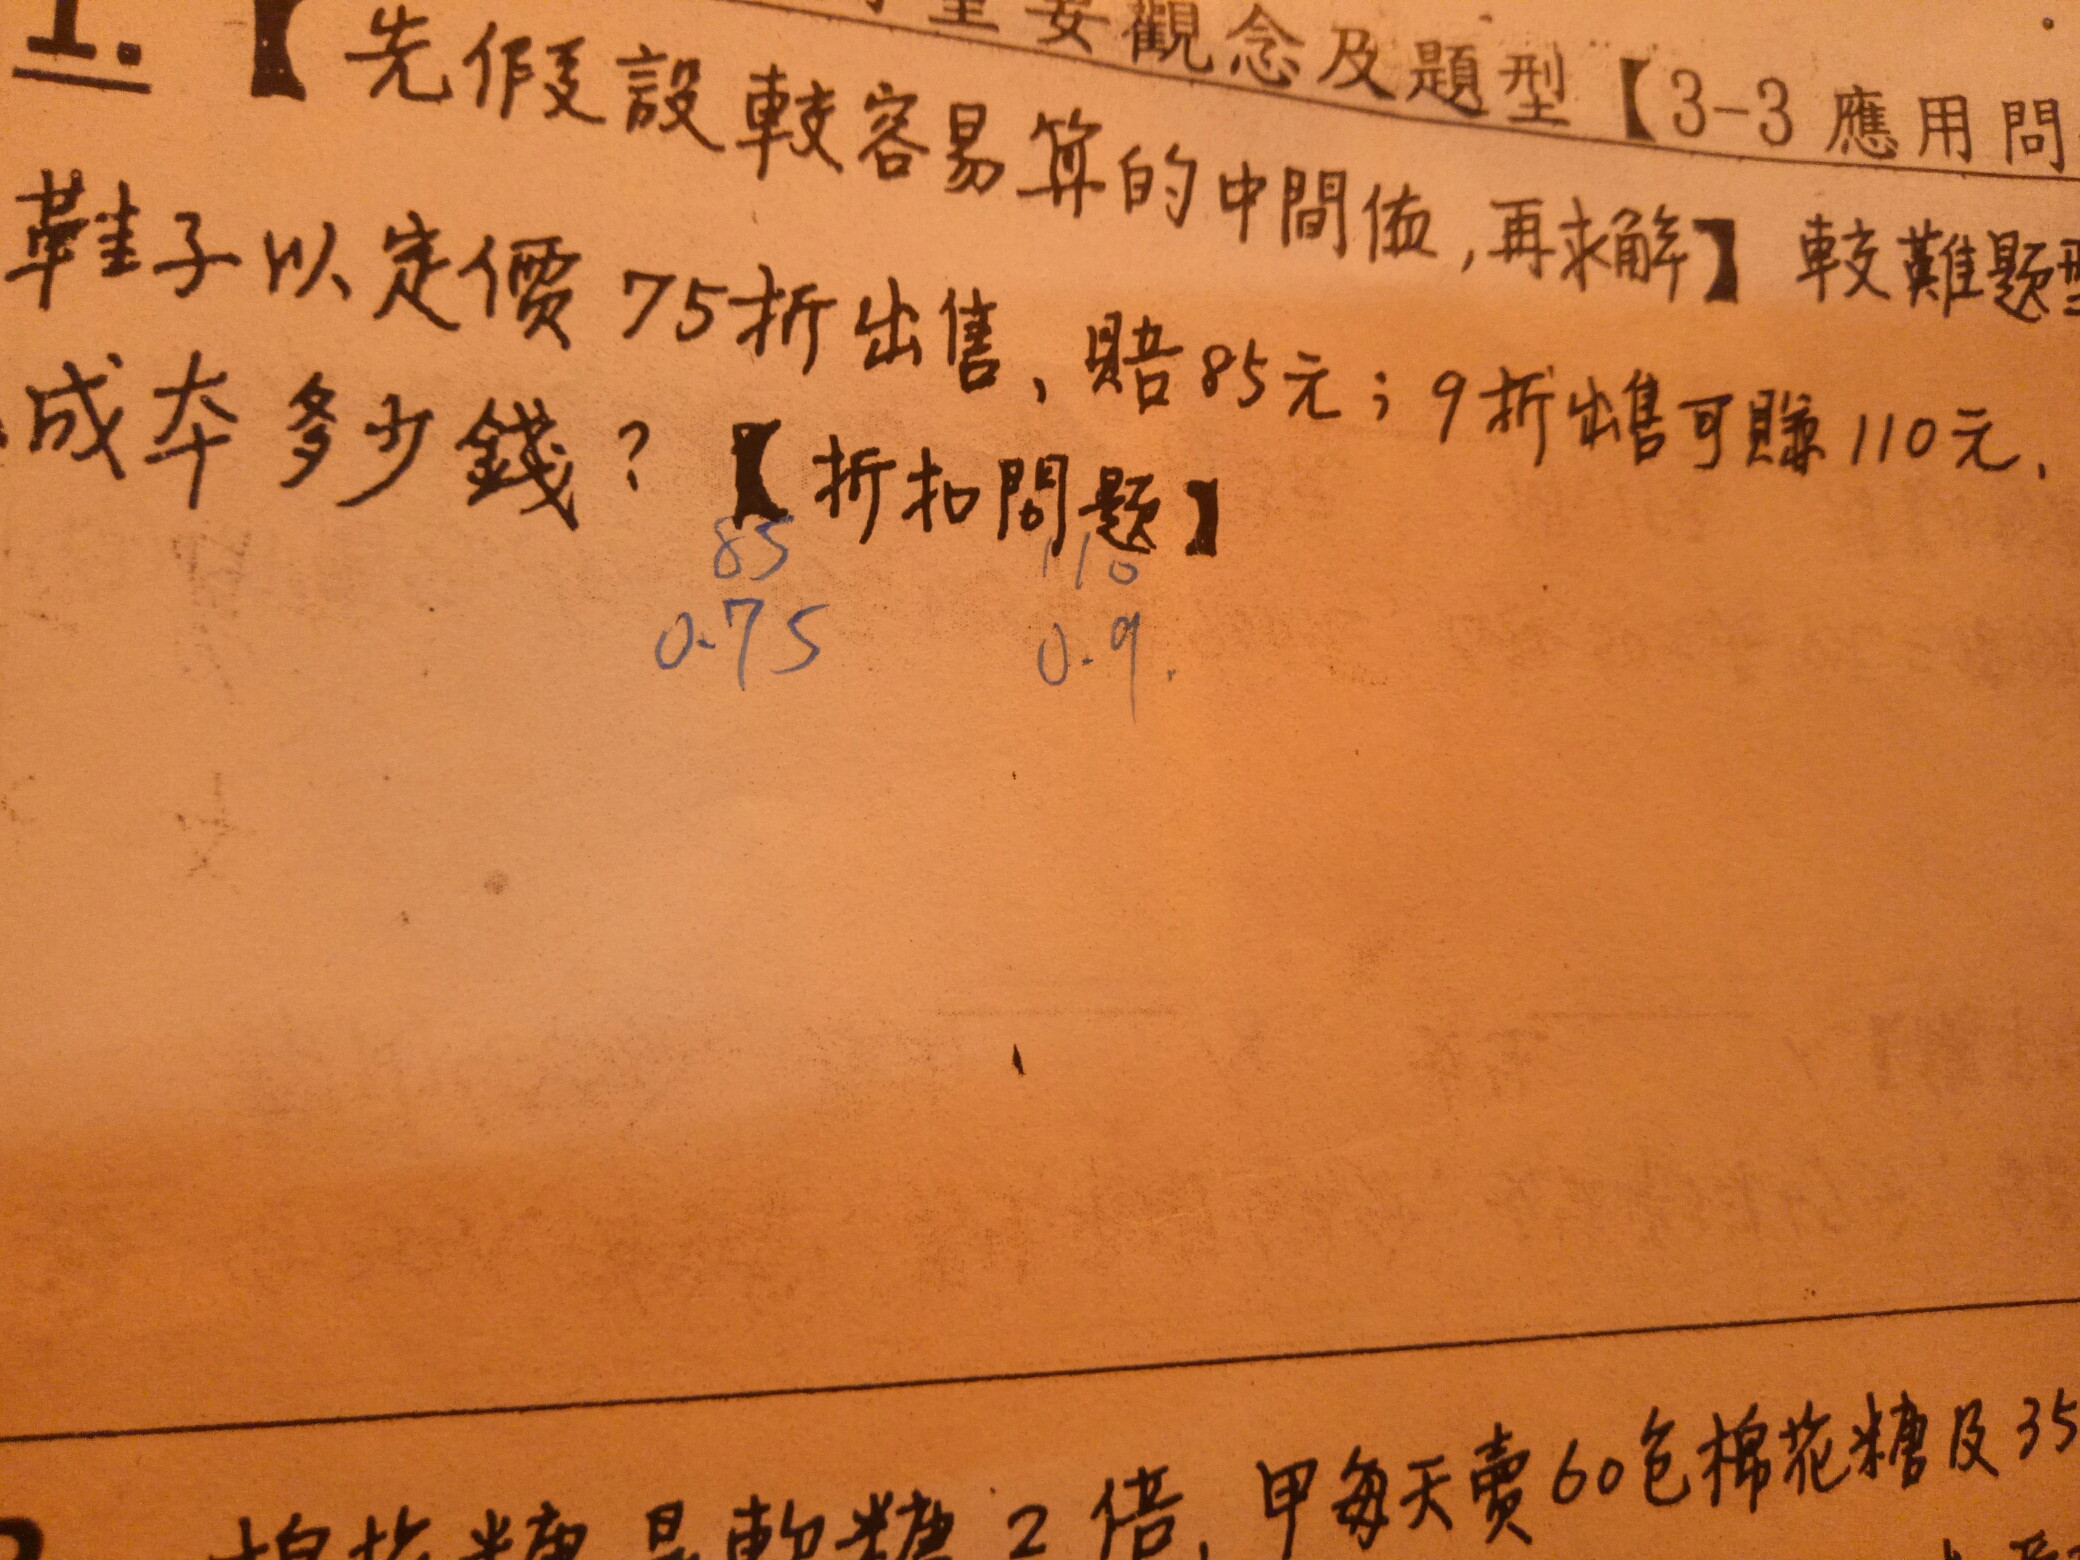 重要觀念及題型【3-3 應用問
1.【先假設較容易算的中間值,再求解】較難題型
鞋子以定價75折出售、賠85元;9折出售可賺110元、
成本多少錢?【折扣問題】
85 110
0.75 0.9.
棉花糖是軟糖2倍,甲每天賣60包棉花糖及35